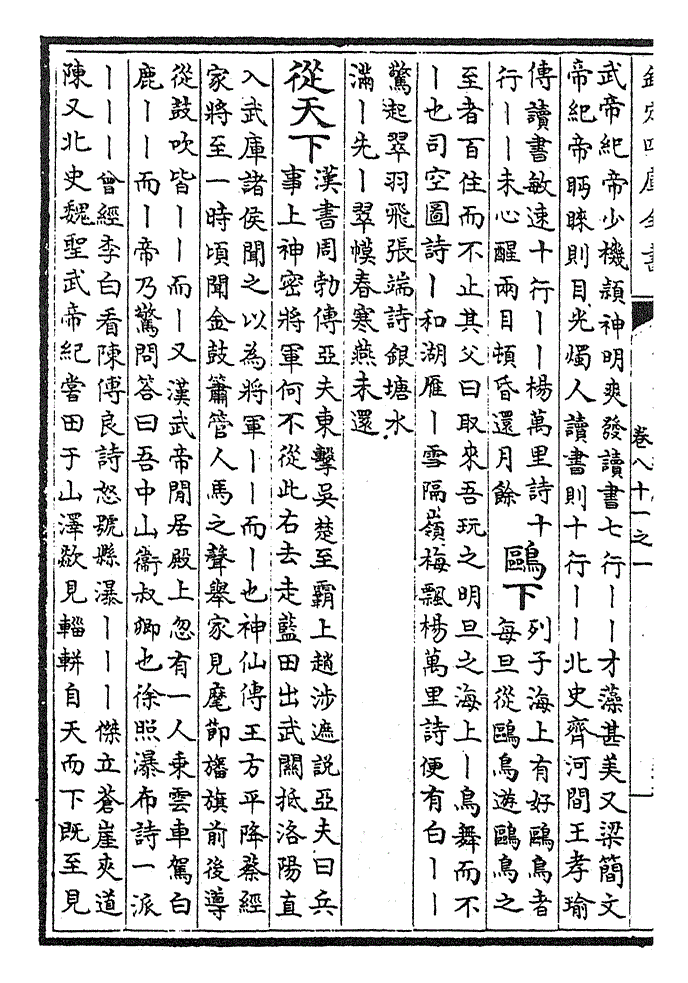 欽定四庫全書
卷八十一之一
武帝紀帝少機頴神明爽發讀書七行丨丨才藻甚美又梁簡文
帝紀帝眄睞則目光燭人讀書則十行丨丨北史齊河間王孝瑜
傳讀書敏速十行丨丨楊萬里詩十
行丨丨未心醒兩目頓昏還月餘
鷗下
列子海上有好鷗鳥者
每旦從鷗鳥遊鷗鳥之
至者百住而不止其父曰取來吾玩之明旦之海上丨鳥舞而不
丨也司空圖詩丨和湖雁丨雪隔嶺梅飄楊萬里詩便有白丨丨
驚起翠羽飛張端詩銀塘水
滿丨先丨翠幙春寒燕未還
從天下
漢書周勃傳亞夫東擊吳楚至霸上趙涉遮說亞夫曰兵
事上神密將軍何不從此右去走藍田出武關抵洛陽直
入武庫諸侯聞之以為將軍丨丨而丨也神仙傳王方平降蔡經
家將至一時頃聞金鼓簫管人馬之聲舉家見麾節旛旗前後導
從鼓吹皆丨丨而丨又漢武帝閒居殿上忽有一人乘雲車駕白
鹿丨丨而丨帝乃驚問答曰吾中山衞叔卿也徐照瀑布詩一派
丨丨丨曾經李白看陳傅良詩怒號縣瀑丨丨丨傑立蒼崖夾道
陳又北史魏聖武帝紀嘗田于山澤欻見輜軿自天而下既至見